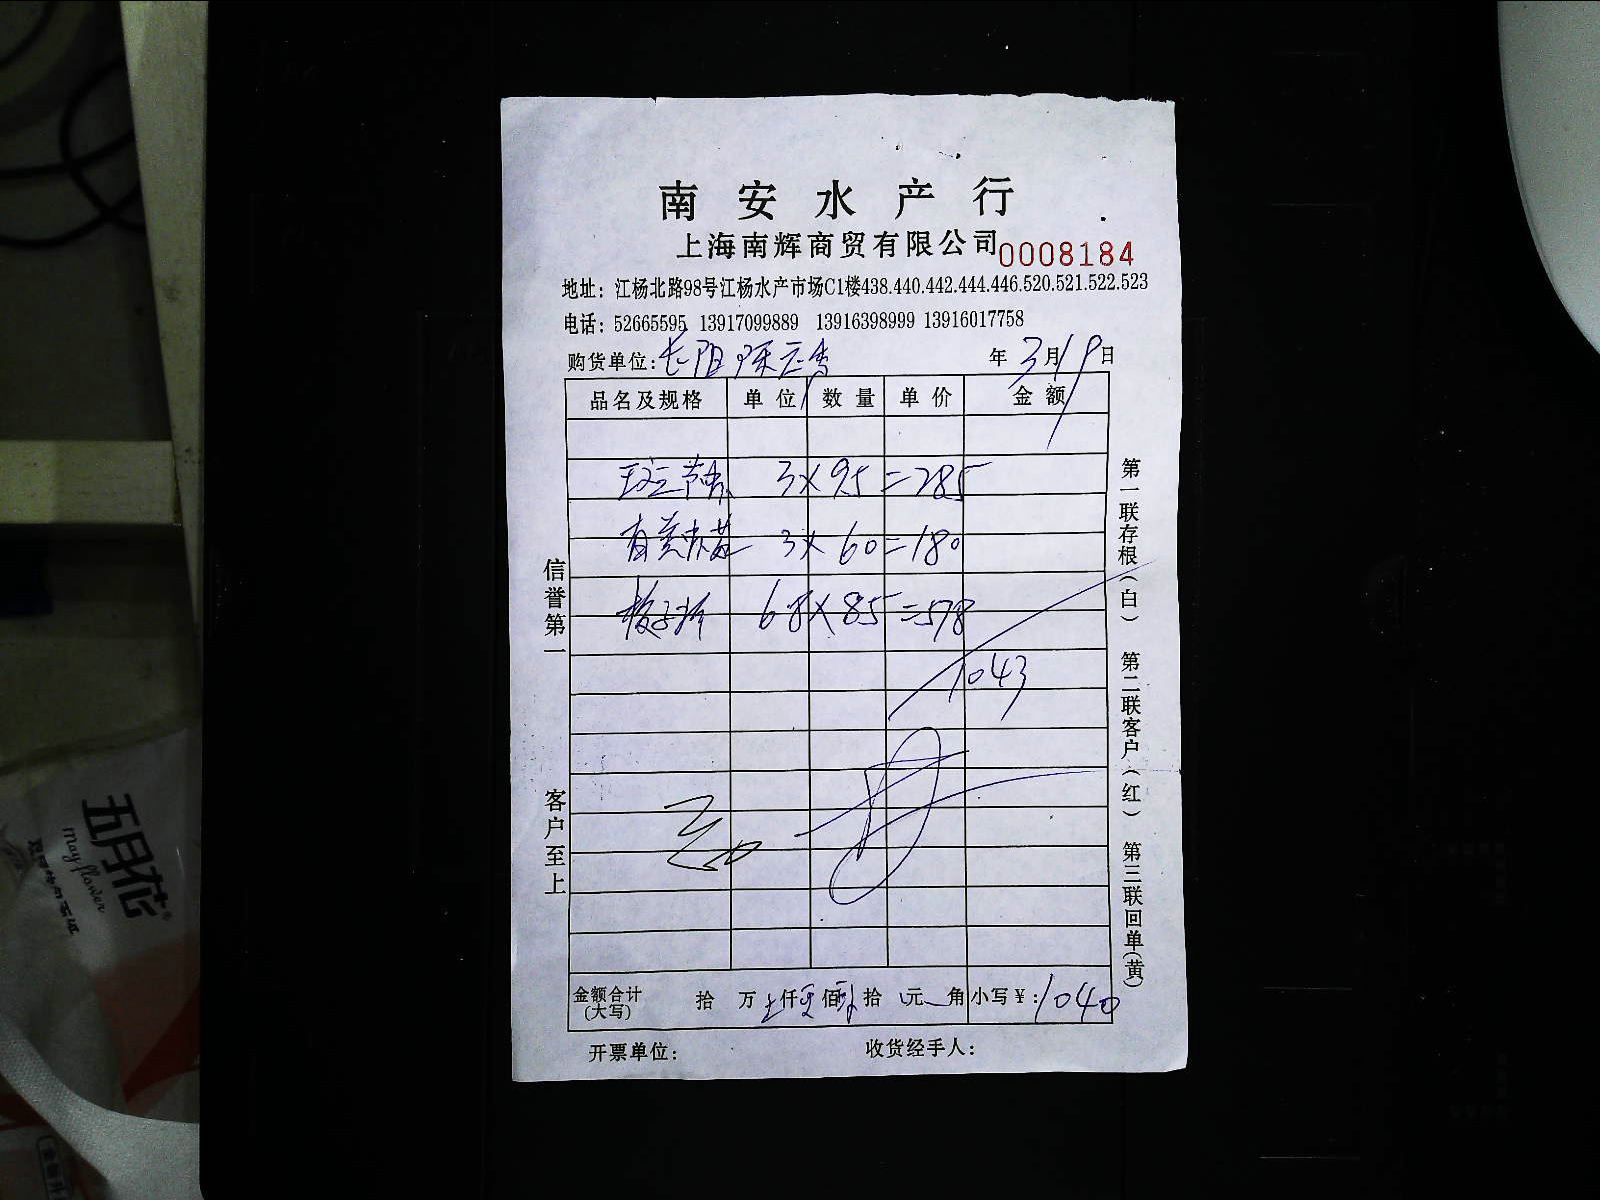 南安水产行
上海南辉商贸有限公司 0008184
地址：江杨北路98号江杨水产市场C1楼438.440.442.444.446.520.521.522.523
电话：52665595 13917099889 13916398999 13916017758
购货单位： 年3月19日
品名及规格 单位 数量 单价 金额
3×95=285
3×60=180
6.8×85=578
1043
金额合计(大写) 拾 万 仟 佰 拾 元 角 小写￥：1040
开票单位： 收货经手人：
信誉第一
客户至上
第一联存根(白) 第二联客户(红) 第三联回单(黄)
五月花
may flower